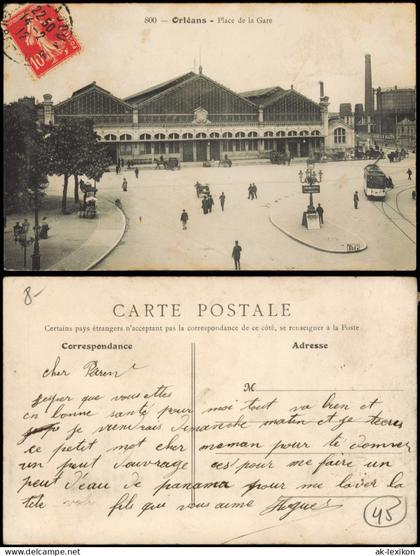 800 — Orléans - Place de la Gare
22 50
10
8-
CARTE POSTALE
Certains pays étrangers n'acceptant pas la correspondance de ce côté, se renseigner à la Poste
Correspondance
Adresse
M
cher Paren
que vous
en bonne santé pour moi tout va bien et
je viendrais dimanche matin et je
ce petit mot cher maman pour te donner
un peut d'ouvrage ces pour me faire un
peut d'eau de panama pour me laver la
tete fils que vous aime Hugues
45
© ak-lexikon.com